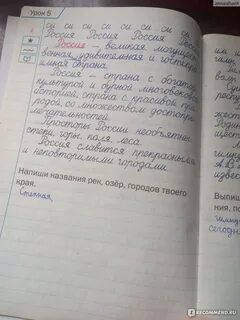 Урок 5
си си си си си си си
Россия Россия Россия Россия
Россия – великая могущест-
венная, удивительная и гостепри-
имная страна.
Россия – страна с богатой
культурой и бурной многовековой
историей, страна с красивой при-
родой, со множеством достопри-
мечательностей.
Просторы России необъятны:
степи, горы, поля, леса.
Россия славится прекрасными
и неповторимыми городами.
Напиши названия рек, озёр, городов твоего
края.
Степная,
Выпиши
ния, по
сегодня
IRECOMMEND.RU